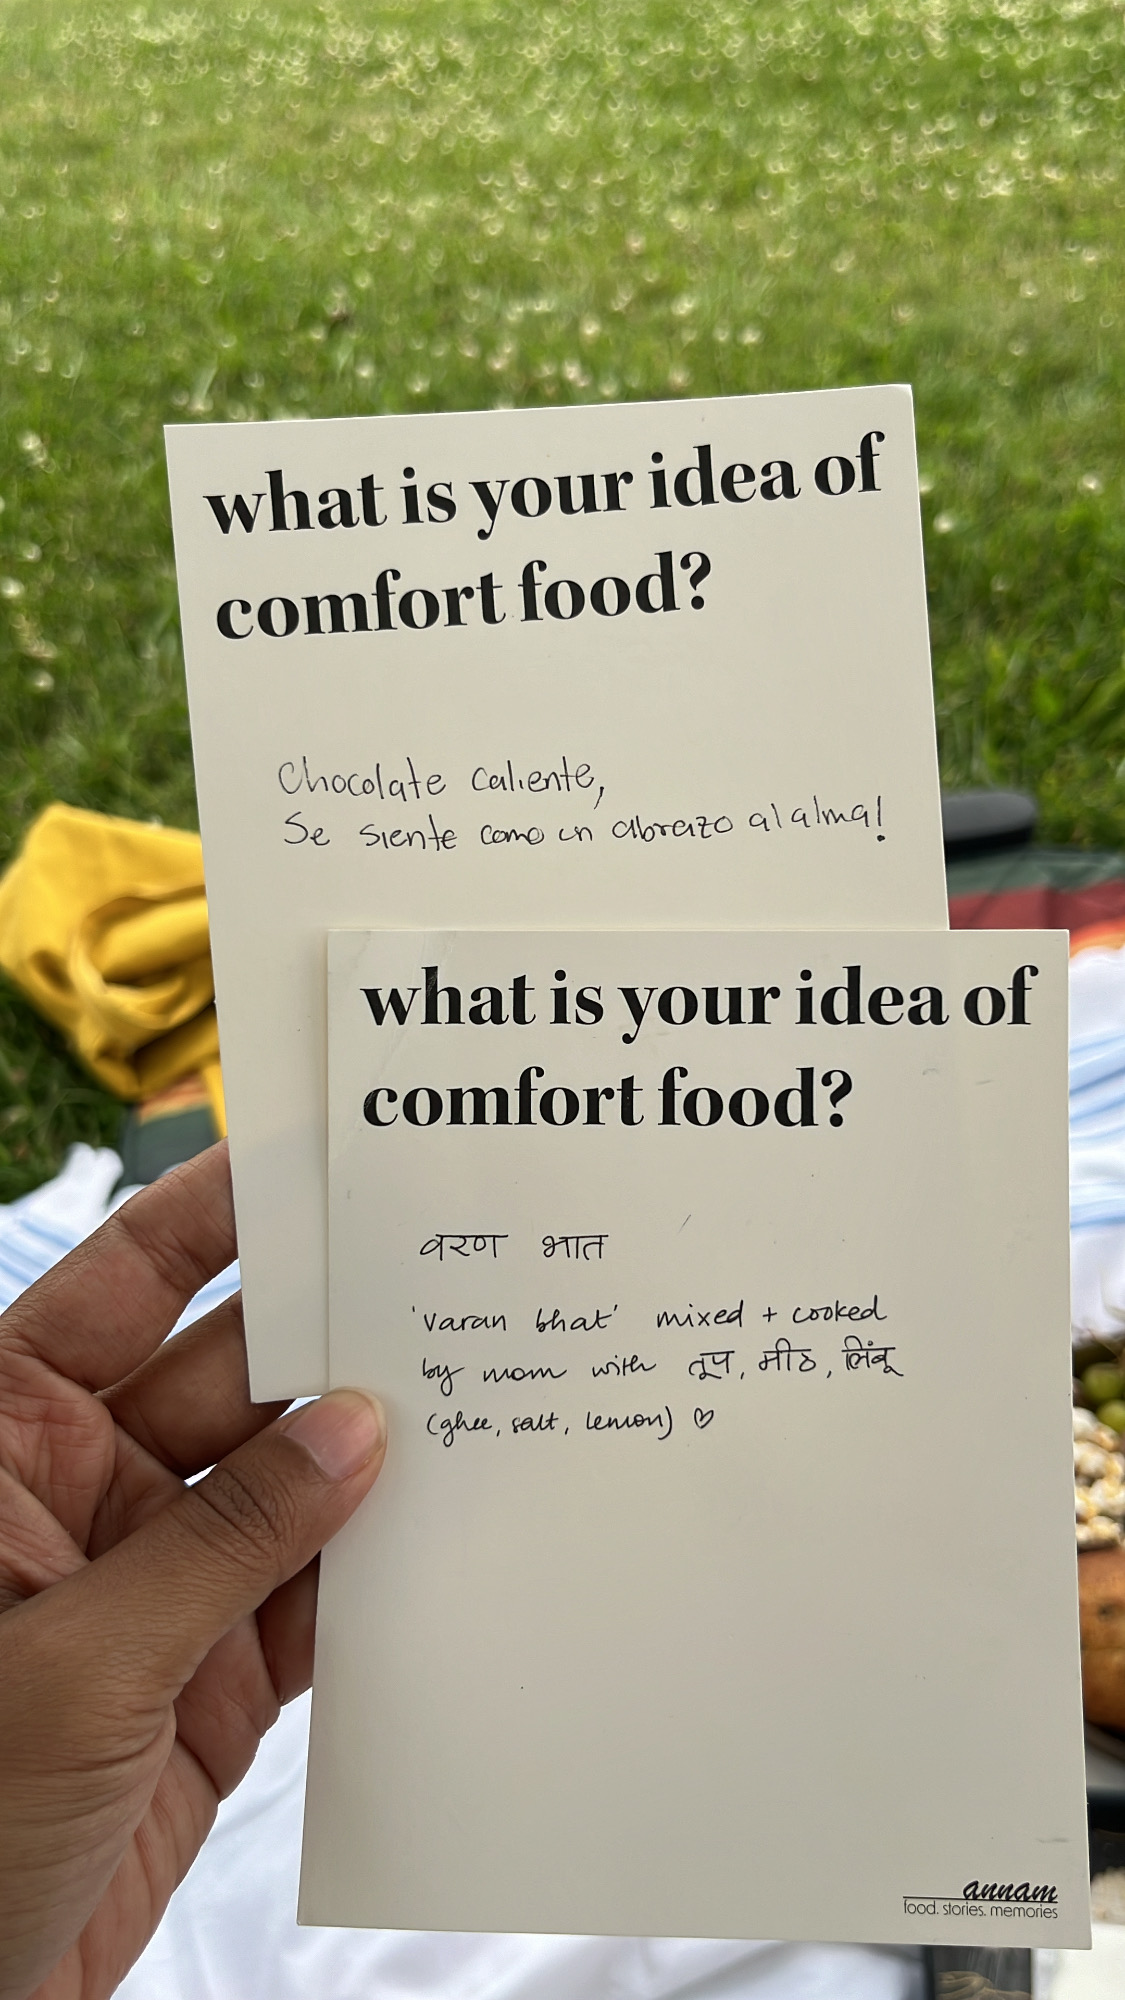 what is your idea of
comfort food?
Chocolate caliente,
Se siente como un abrazo al alma!
what is your idea of
comfort food?
वरण भात
'varan bhat' mixed + cooked
by mom with तूप, मीठ, लिंबू
(ghee, salt, lemon) ♡
annam
food. stories. memories